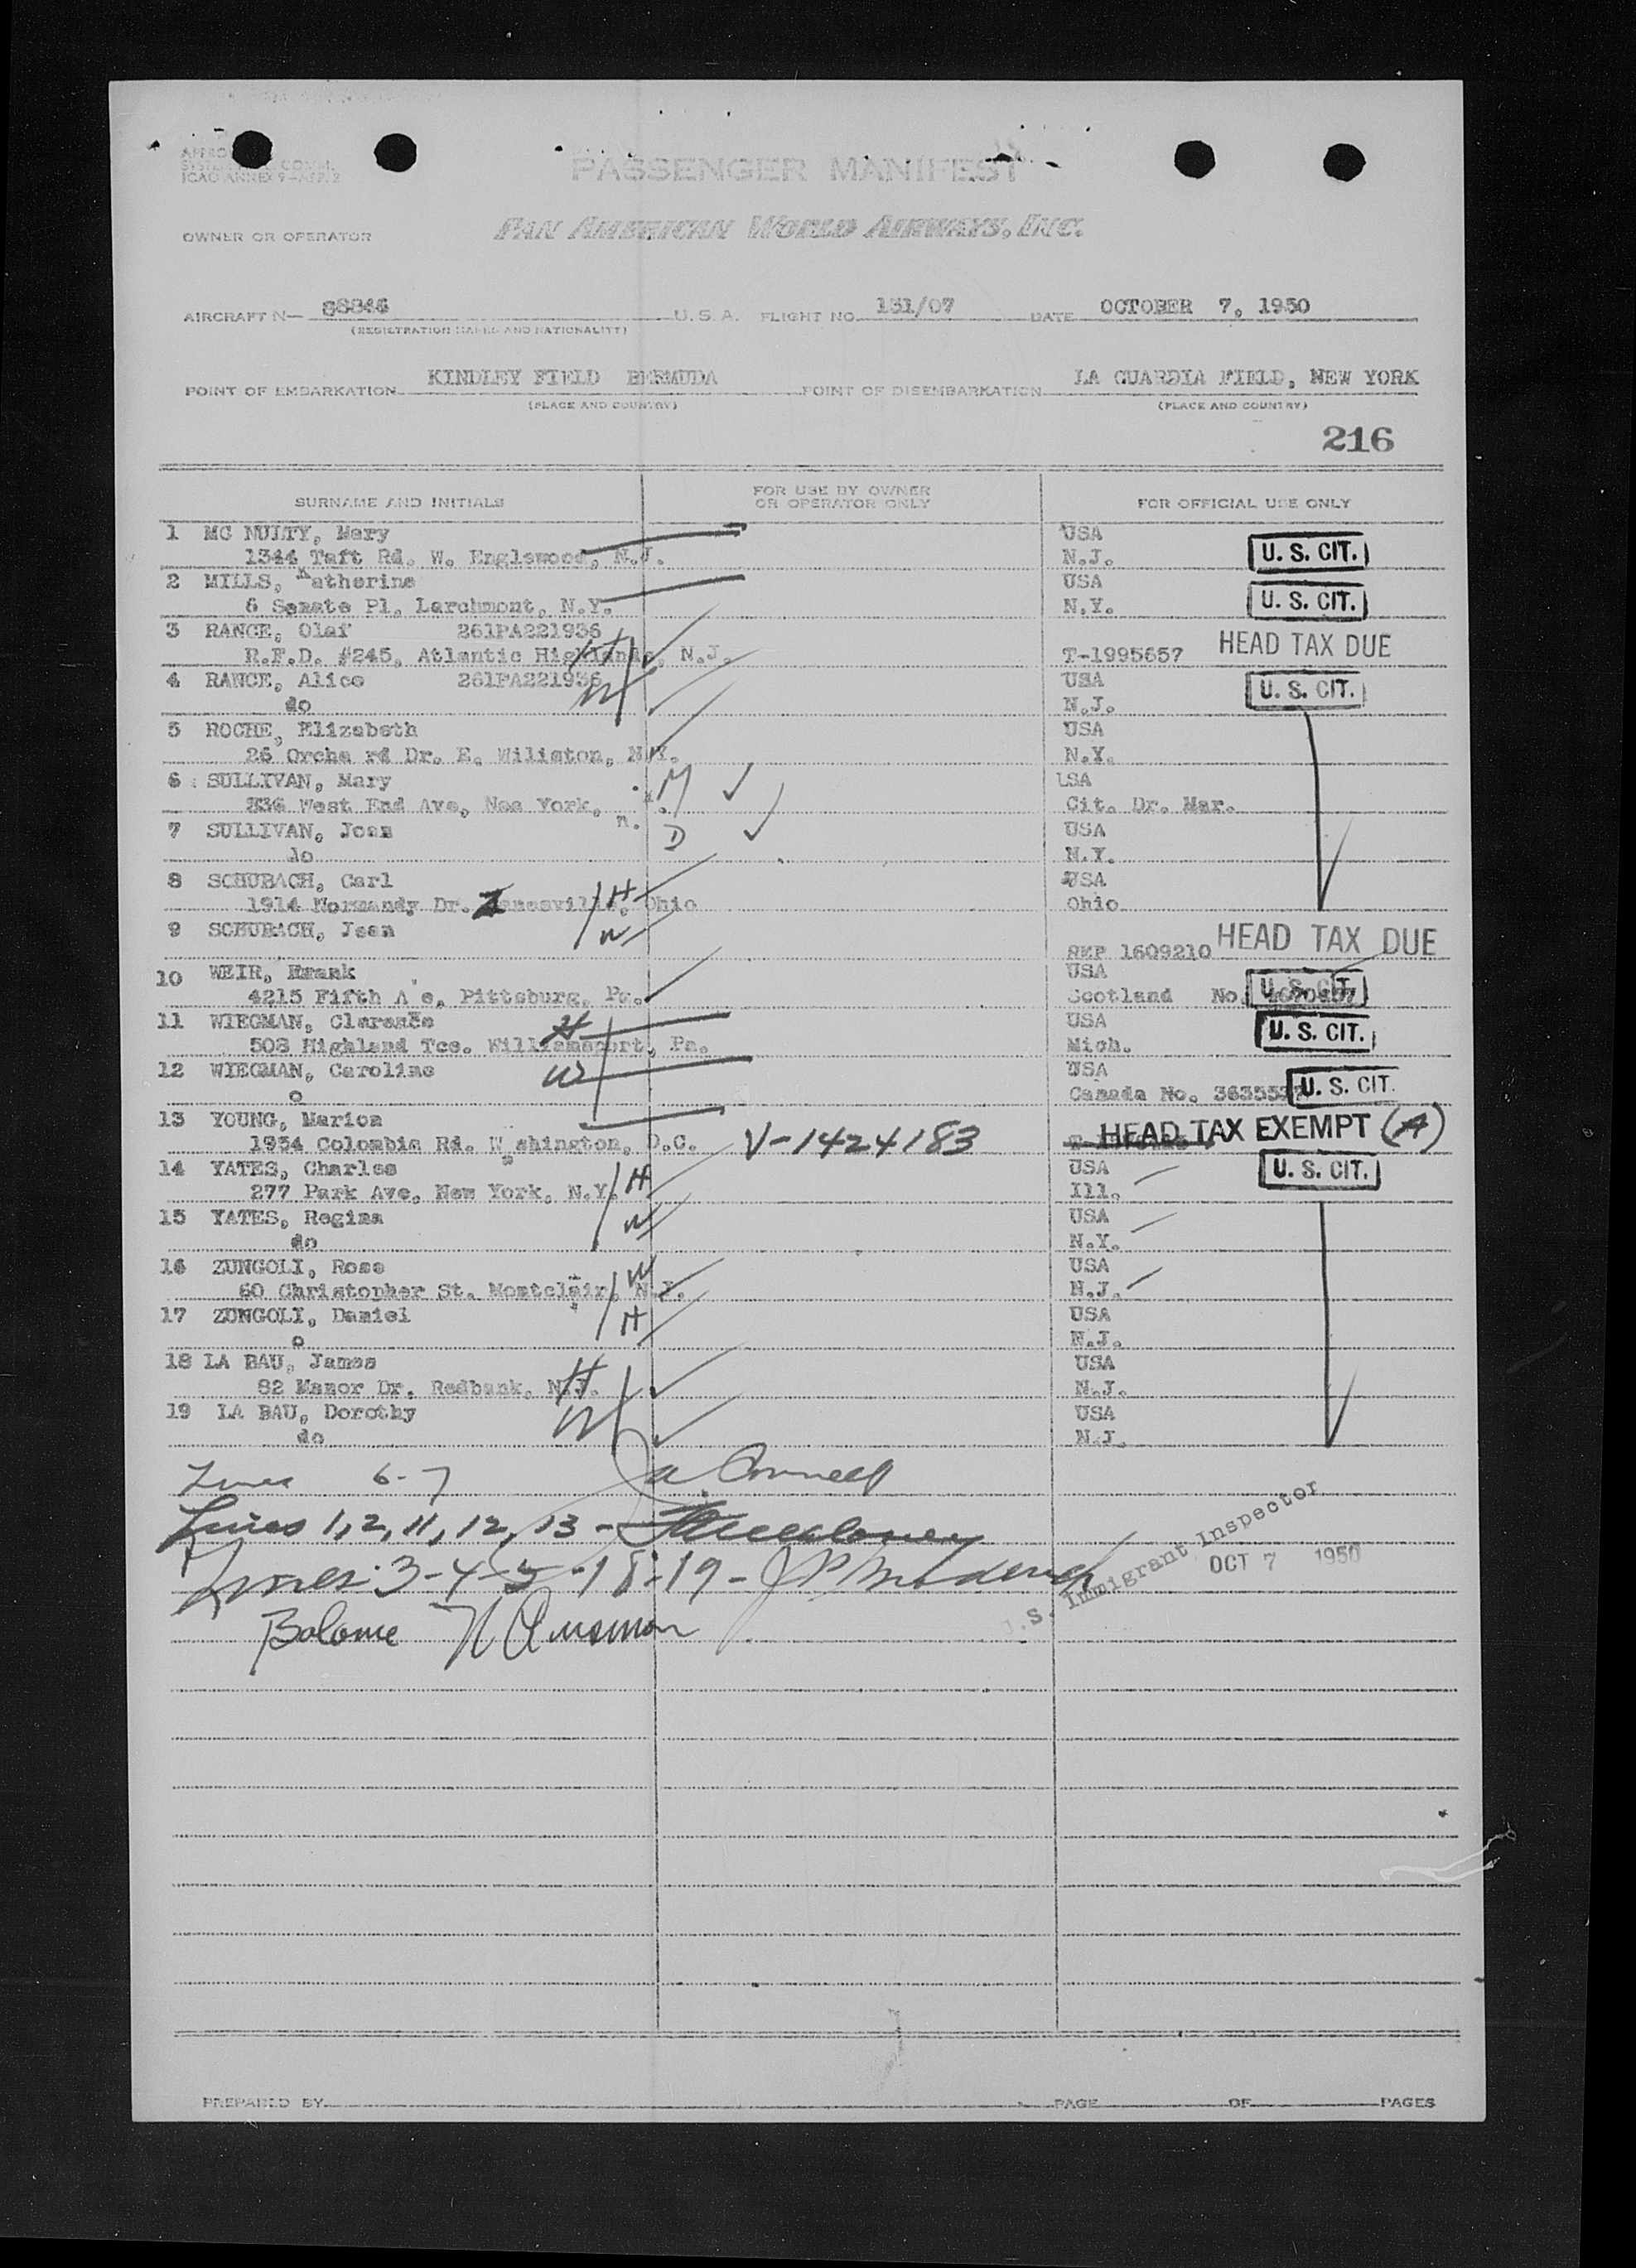 PASSENGER MANIFEST
PAN AMERICAN WORLD AIRWAYS, INC.
OWNER OR OPERATOR
AIRCRAFT N— 88846 U. S. A. FLIGHT NO. 131/07 DATE OCTOBER 7, 1950
(REGISTRATION MARKS AND NATIONALITY)
POINT OF EMBARKATION KINDLEY FIELD BERMUDA POINT OF DISEMBARKATION LA GUARDIA FIELD, NEW YORK
(PLACE AND COUNTRY) (PLACE AND COUNTRY)
216
SURNAME AND INITIALS FOR USE BY OWNER OR OPERATOR ONLY FOR OFFICIAL USE ONLY
1 MC NULTY, Mary USA
1344 Taft Rd. W. Englewood, N.J. N.J. U. S. CIT.
2 MILLS, Katherine USA
6 Senate Pl. Larchmont, N.Y. N.Y. U. S. CIT.
3 RANGE, Olaf 261PA221936
R.F.D. #245, Atlantic Highlands, N.J. H T-1995657 HEAD TAX DUE
4 RANGE, Alice 261PA221936 W USA
do N.J. U. S. CIT.
5 ROCHE, Elizabeth USA
26 Orcha rd Dr. E. Williston, N.Y. N.Y.
6 SULLIVAN, Mary M USA
336 West End Ave, New York, Cit. Dr. Mar.
7 SULLIVAN, Joan D USA
do N.Y.
8 SCHUBACH, Carl USA
1914 Normandy Dr. Zanesville, Ohio H Ohio
9 SCHUBACH, Jean W
REP 1609210 HEAD TAX DUE
10 WEIR, Frank USA
4215 Fifth A e, Pittsburg, Pa. Scotland No. U. S. CIT.
11 WIEGMAN, Clarence H USA
508 Highland Tce. Williamsport, Pa. Mich. U. S. CIT.
12 WIEGMAN, Caroline W USA
o Canada No. U. S. CIT.
13 YOUNG, Marion
1954 Colombia Rd. Washington, D.C. V-1424183 HEAD TAX EXEMPT (A)
14 YATES, Charles USA
277 Park Ave, New York, N.Y. H Ill. U. S. CIT.
15 YATES, Regina W USA
do N.Y.
16 ZUNGOLI, Rose W USA
60 Christopher St. Montclair, N.J. N.J.
17 ZUNGOLI, Daniel H USA
o N.J.
18 LA BAU, James H USA
82 Manor Dr. Redbank, N.J. N.J.
19 LA BAU, Dorothy W USA
do N.J.
Lines 6-7
Lines 1, 2, 11, 12, 13 -
Lines 3-4-5-18-19 -
U.S. Immigrant Inspector
OCT 7 1950
Balance
PREPARED BY PAGE OF PAGES